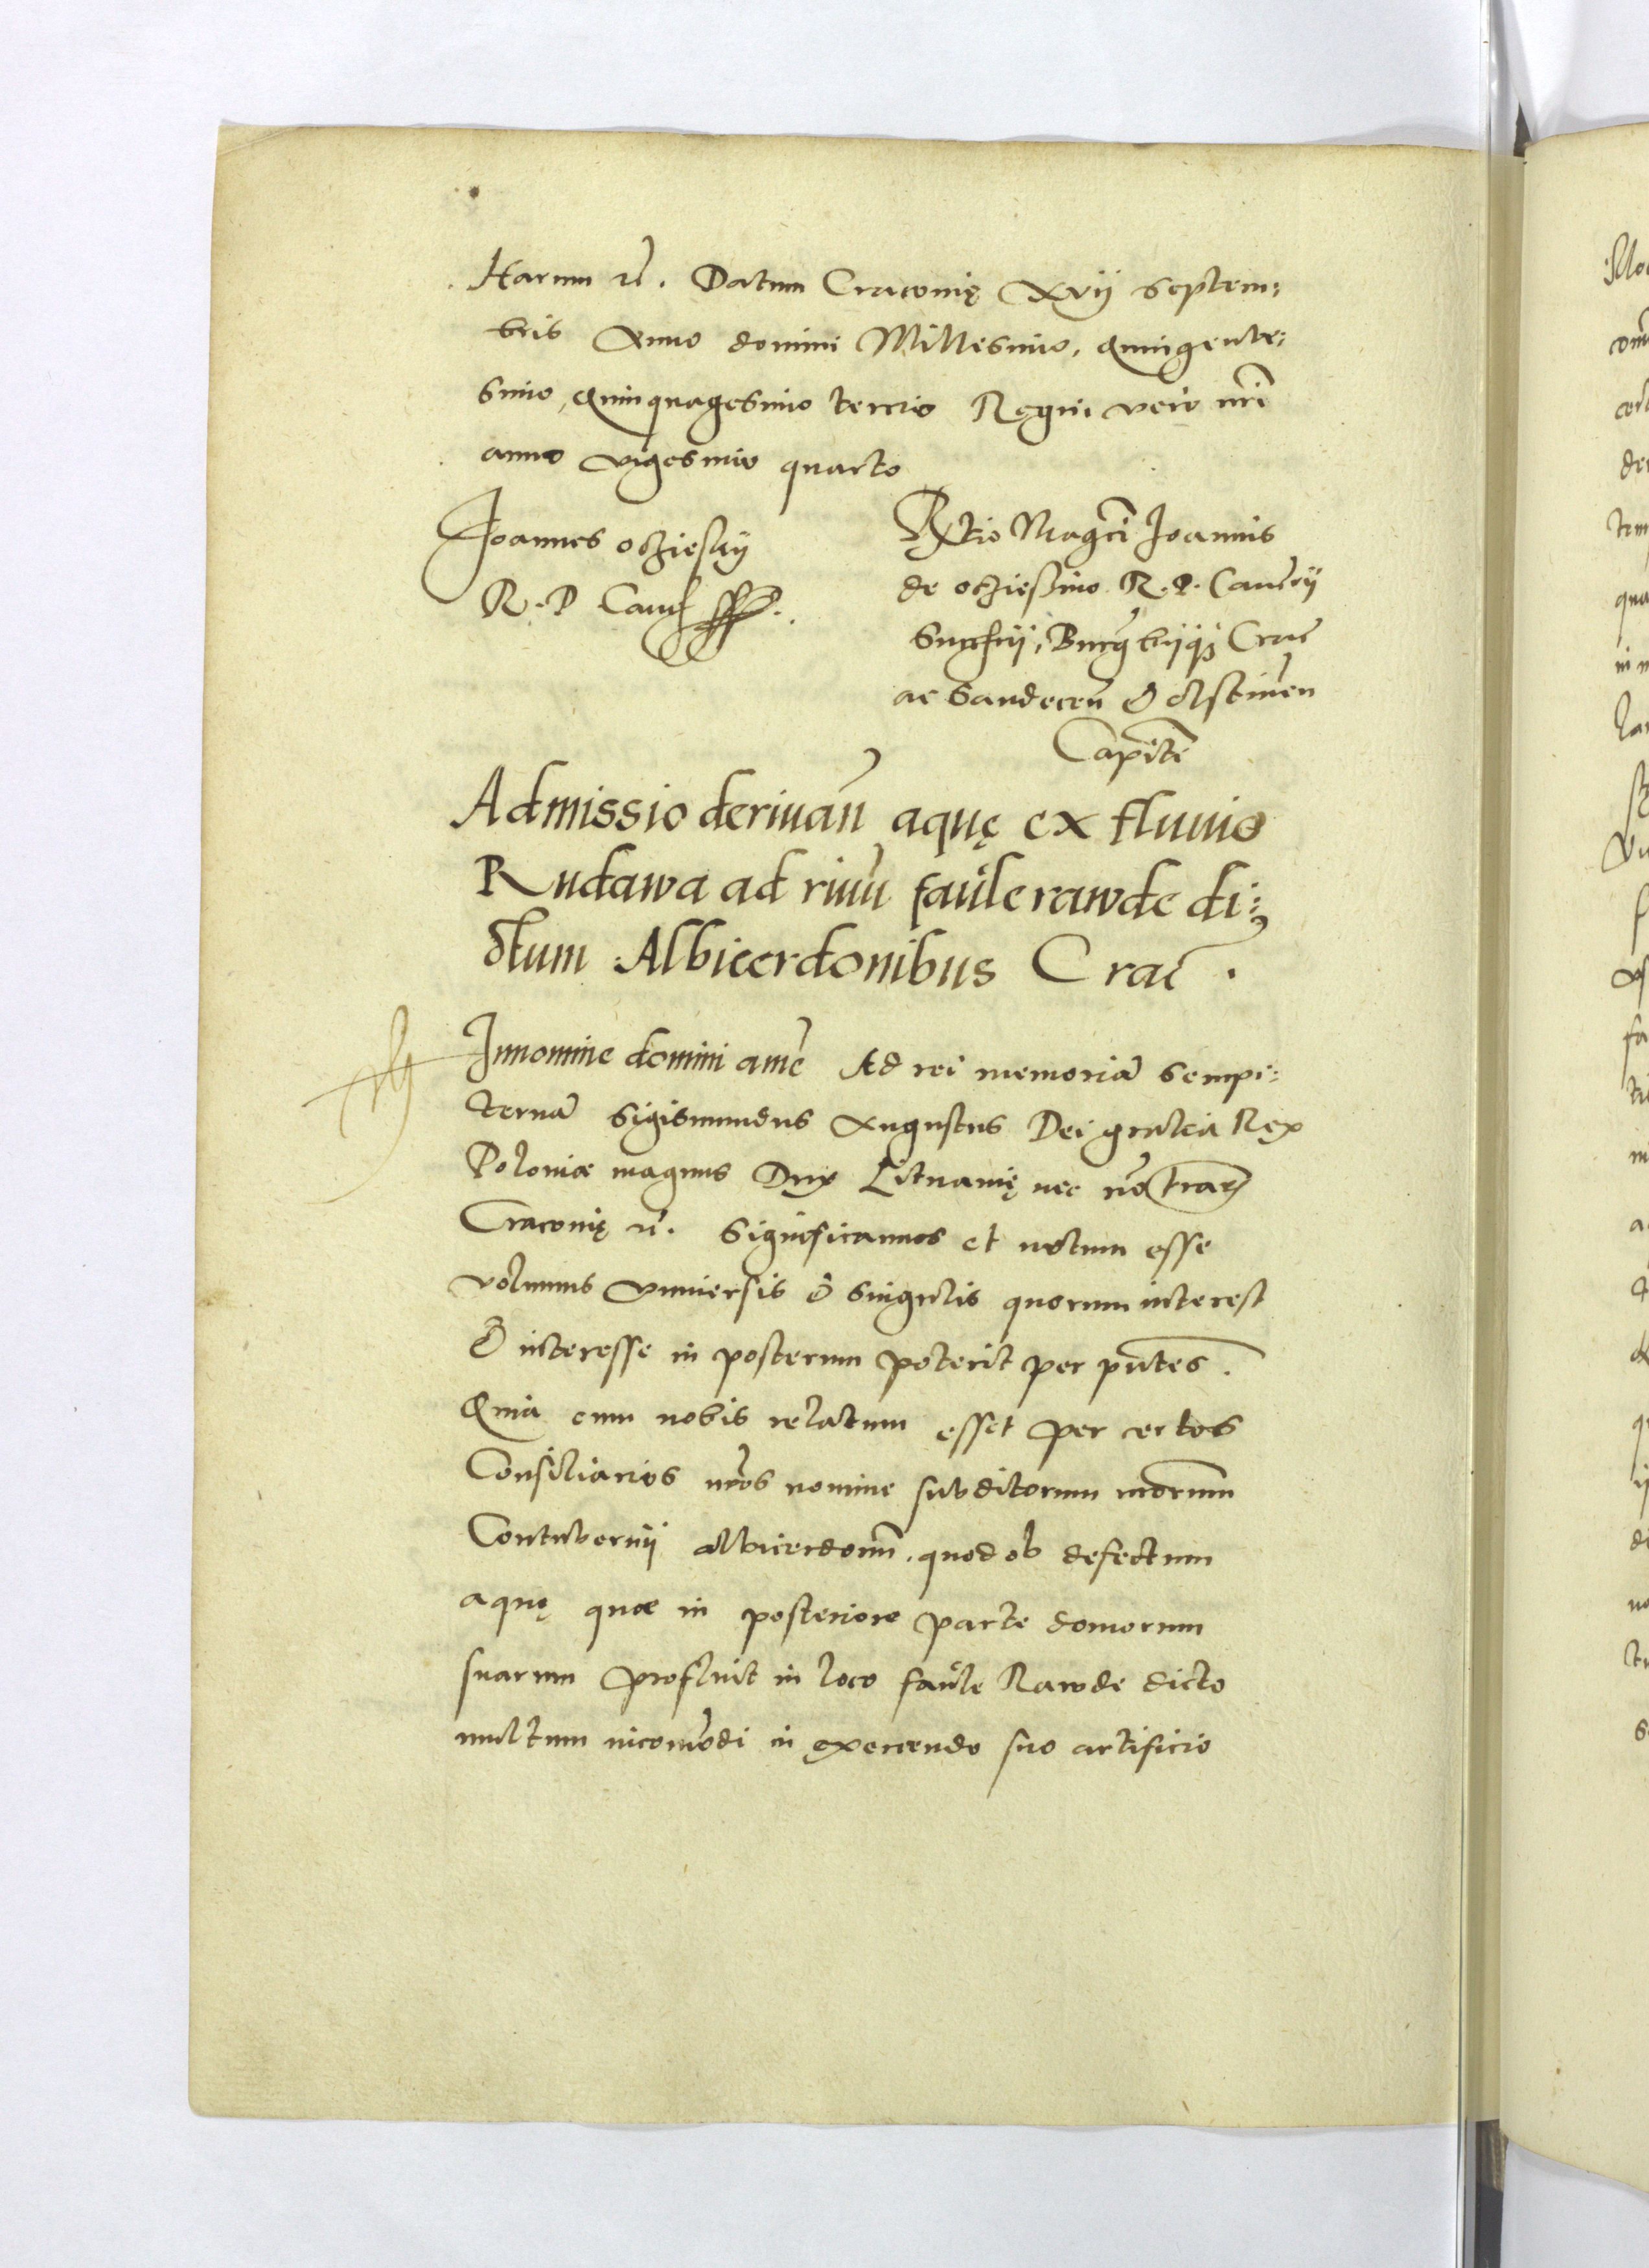 Harum rc̃. Datum Cracovię Xvij Septem:
bris Anno domini Millesimo, Quingente:
simo, Quinquagesimo tercio Regni vero nrĩ
anno vigesimo quarto
Joannes oczieskij
R. P Canc̃
Rẽtio Magcĩ Joannis
de oczieszino R. P. Cancrij
Burgbrijqʒ Crac̃
ac Sandecen̄ & Olstinen̄
Capitĩ
Admissio derivan̄ aquę ex fluvio
Rudawa ad rivũ faŭle rawde di:
ctum Albicerdonibus Crac̃.
In nomine domini amẽ Ad rei memoriã sempi:
ternã Sigismundus Augustus Dei gratia Rex
Poloniæ magnus Dux Lituanię nec nõ trarꝝ
Cracovię rc̃. Significamus et notum esse
volumus universis & singulis quorum interest
& interesse in posterum poterit per pñtes.
Quia cum nobis relatum esset per certos
Consiliarios nrõs nomine subditorum nrõrum
Contubernij albicerdonũ, quod ob defectum
aquę quæ in posteriore parte domorum
suarum profluit in loco faŭle Rawde dicto
multum incomõdi in exercendo suo artificio